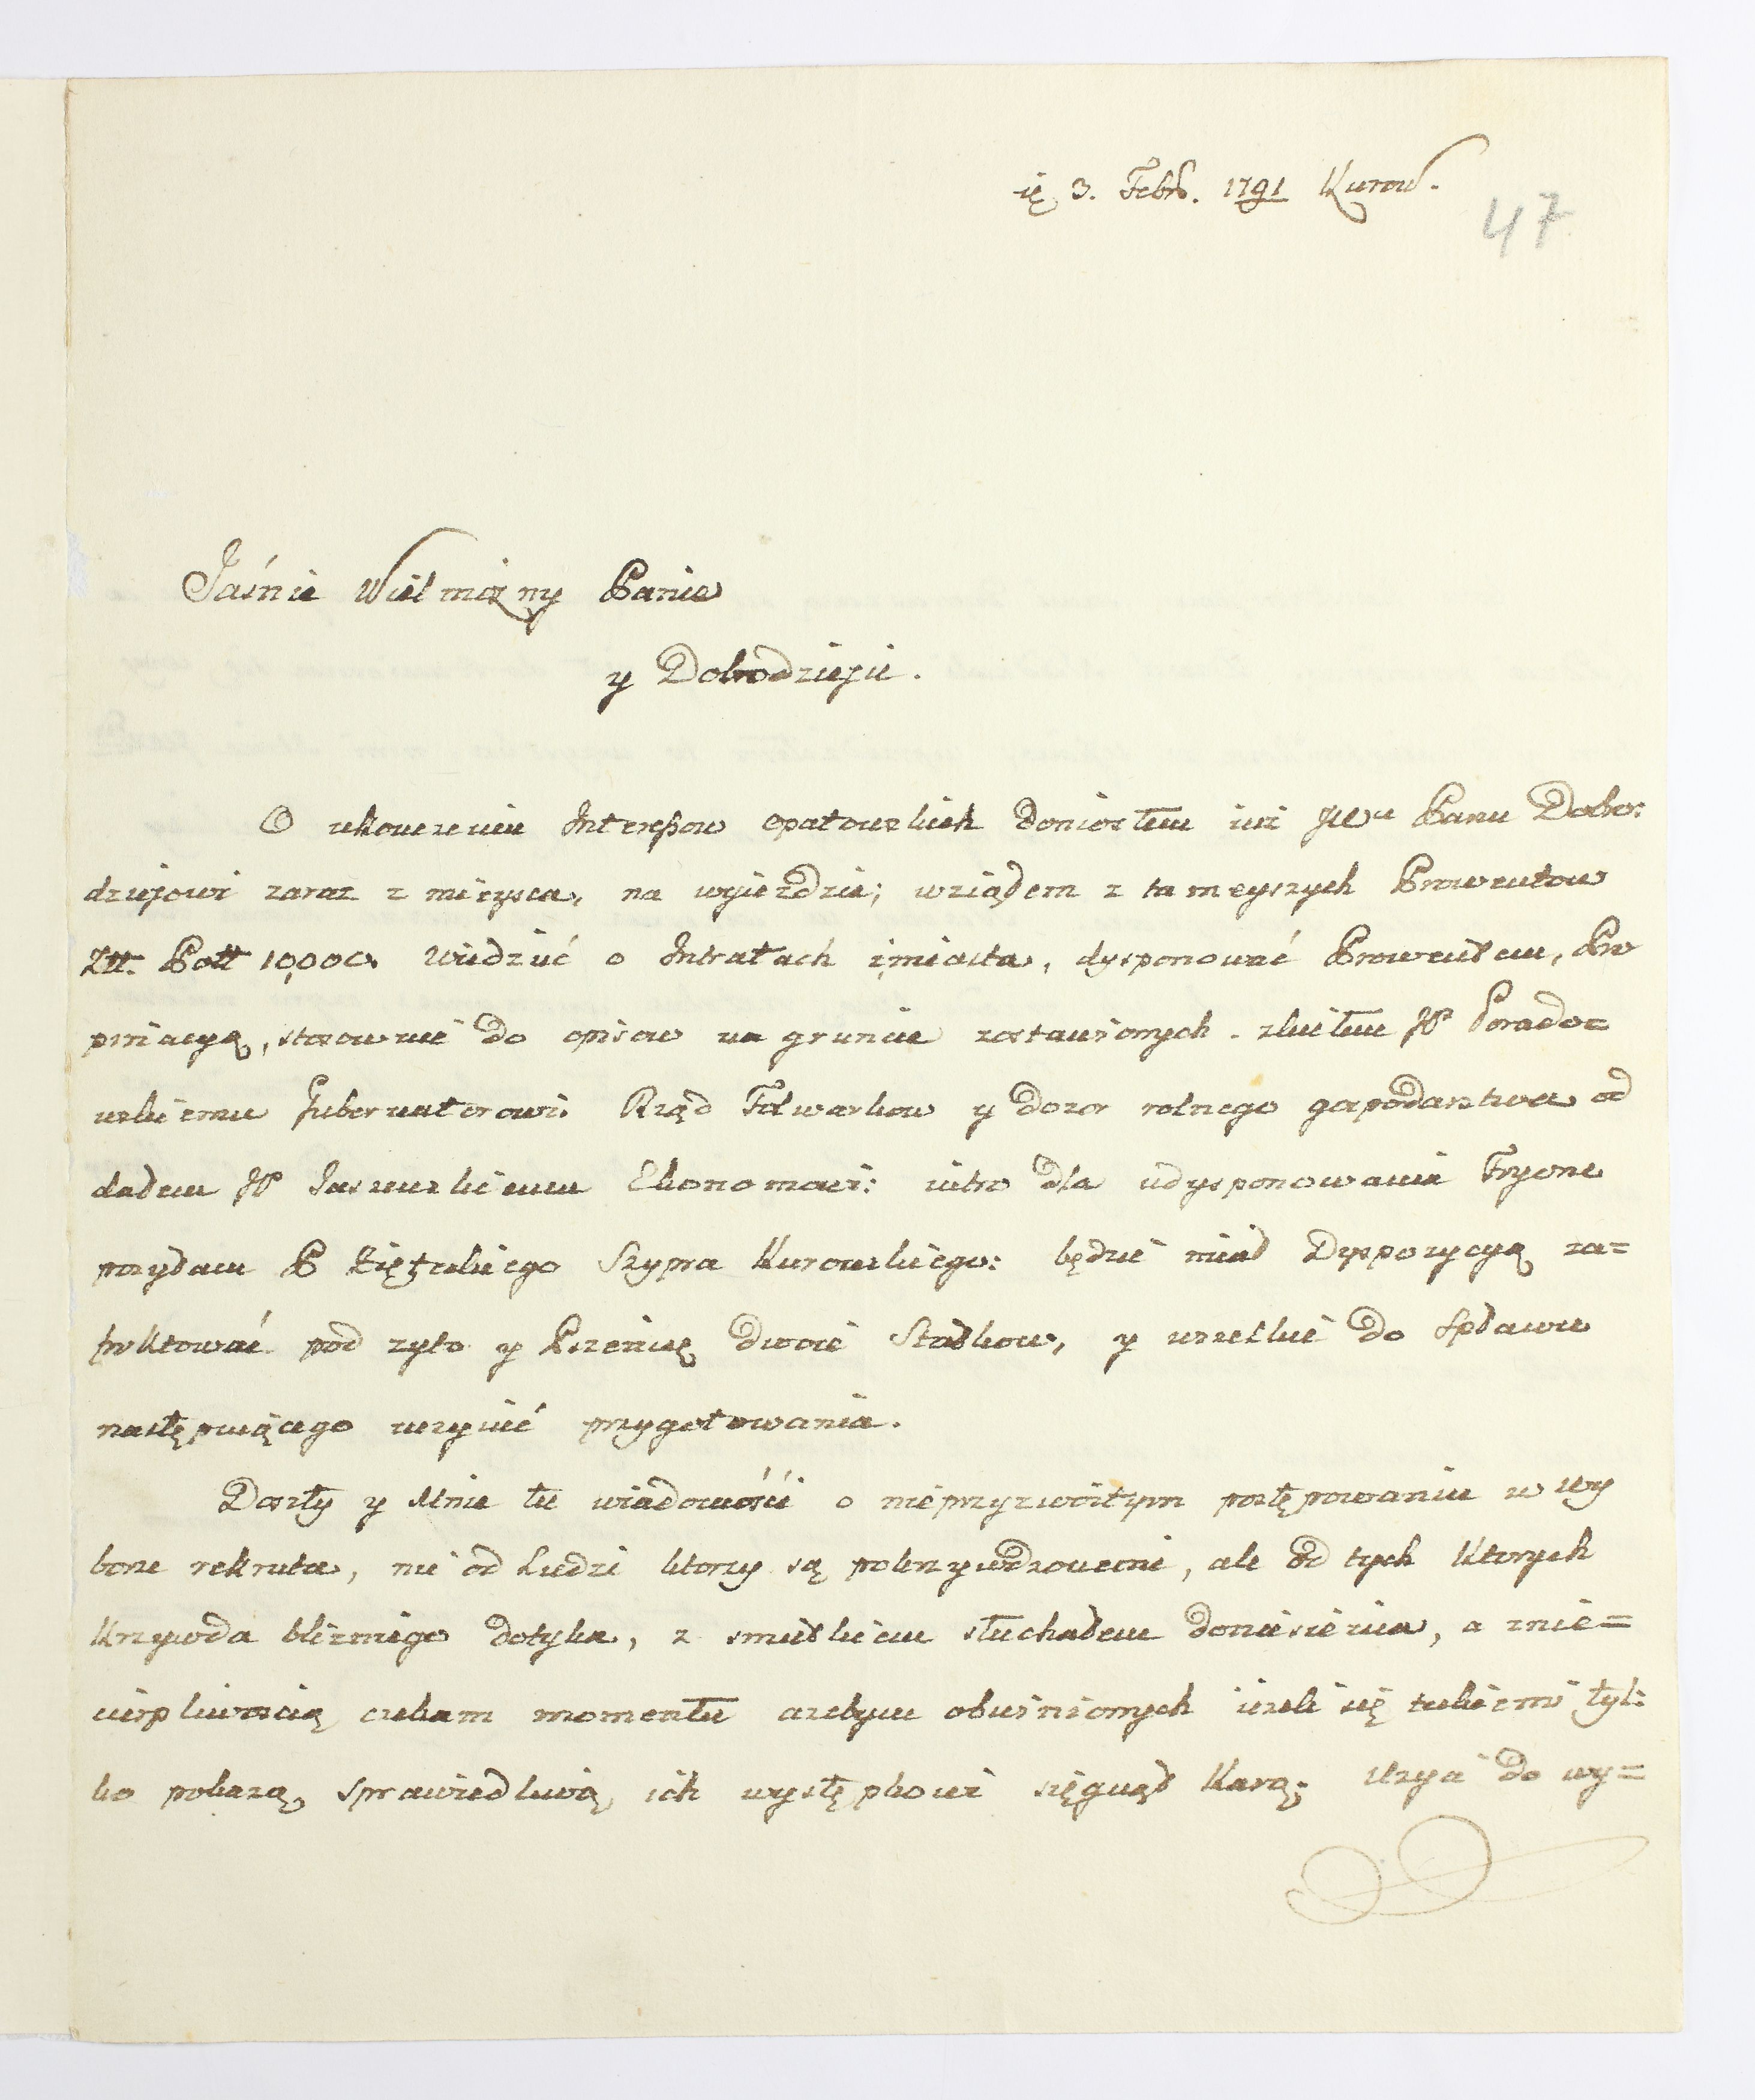 3. Febr. 1791 Kurow.
47
Jaśnie Wielmożny Panie
y Dobrodzieju.
O ukonczeniu Interessow opatowskich doniosłem iuż JWu Panu Dobro:
dziejowi zaraz z mieysca, na wyieździe; wziąłem z tameyszych Prowentow
Złł. Poll 10,000. Wiedzieć o Intratach zmiasta, dysponować Prowentem, Pro
pinacyą, stosownie do opisow na gruncie zostawionych. zleciłem JP Porado=
wskiemu Gubernatorowi. Rząd Folwarkow y dozor rolnego gospodarstwa od
dałem JP Jaszewskiemu Ekonomowi: iutro dla udysponowania Tryone
posyłam P Ziętulskiego Szypra Kurowskiego: będzie miał Dyspozycyą za=
fryktować pod zyto y Pszenicę dwoie Statkow, y wszelkie do Spławu
następuiącego uczynić przygotowania.
Doszły y Mnie tu wiadomości o nieprzyzwoitym postępowaniu w wy
borze rekruta, nie od Ludzi ktorzy są pokrzywdzonemi, ale od tych Ktorych
Krzywda bliźniego dotyka, z smutkiem słuchałem doniesienia, a znie=
cierpliwością czekam momentu azebym obwinionych ieżeli się takiemi tyl:
ko pokażą, sprawiedliwą ich występkowi sięgnął Karą; Uzyi do wy=